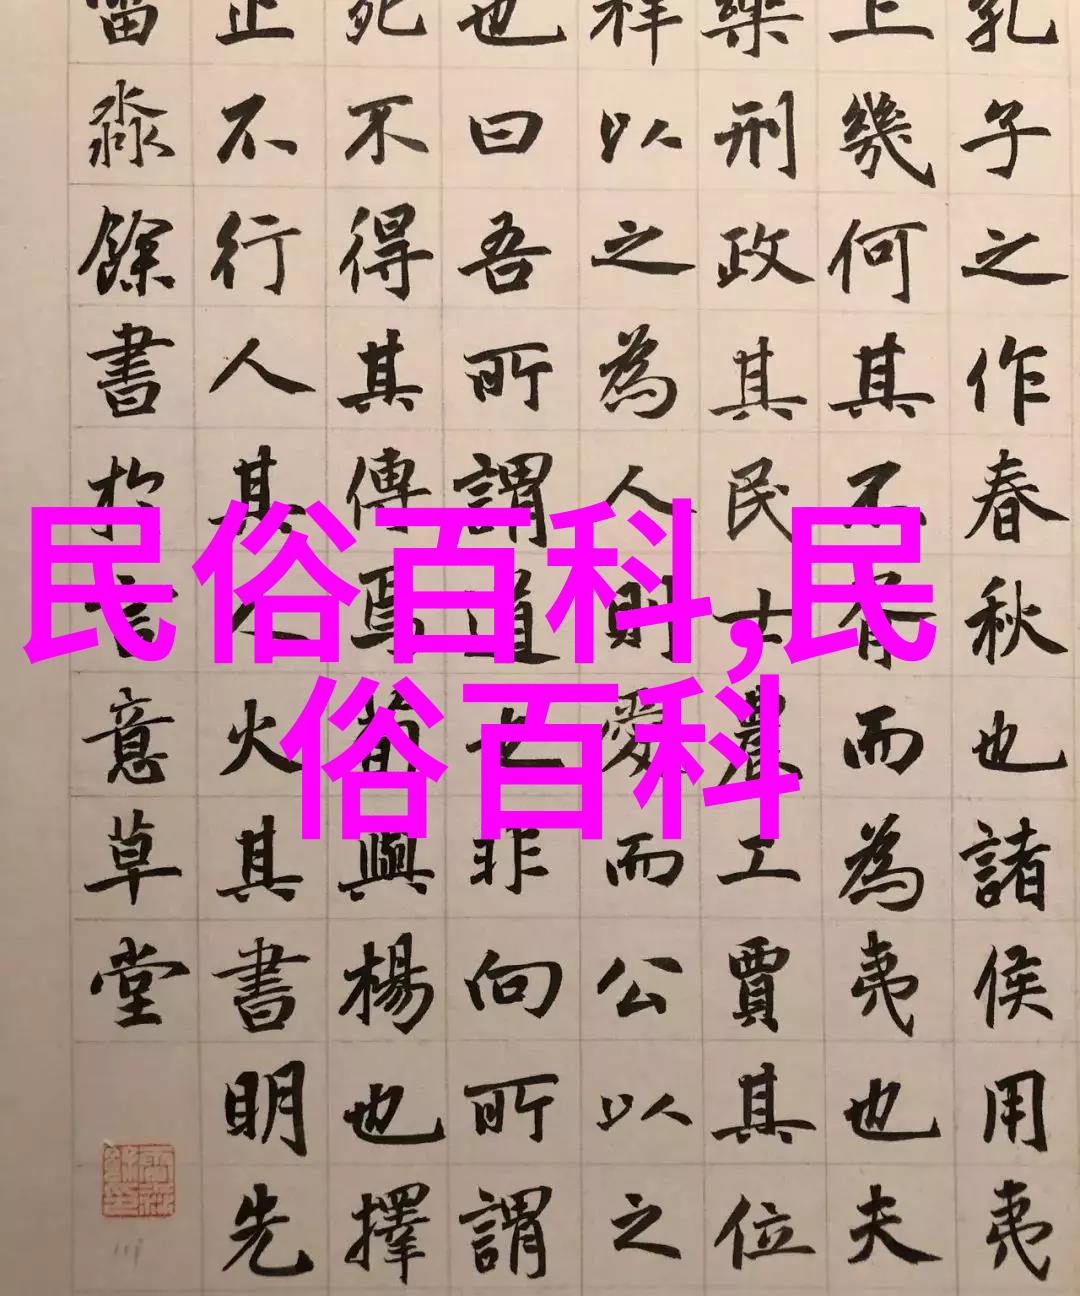 孔子之作春秋也諸侯用夷
上幾何其不胥而為夷也夫
樂刑政其民士農工賈其位
祥以之為人則愛而公以之
也曰吾所謂道也非向所謂
死不得其傳焉荀與楊也擇
止不行人其人火其書明先
淼餘書於意草堂
民俗百科,民
俗百科